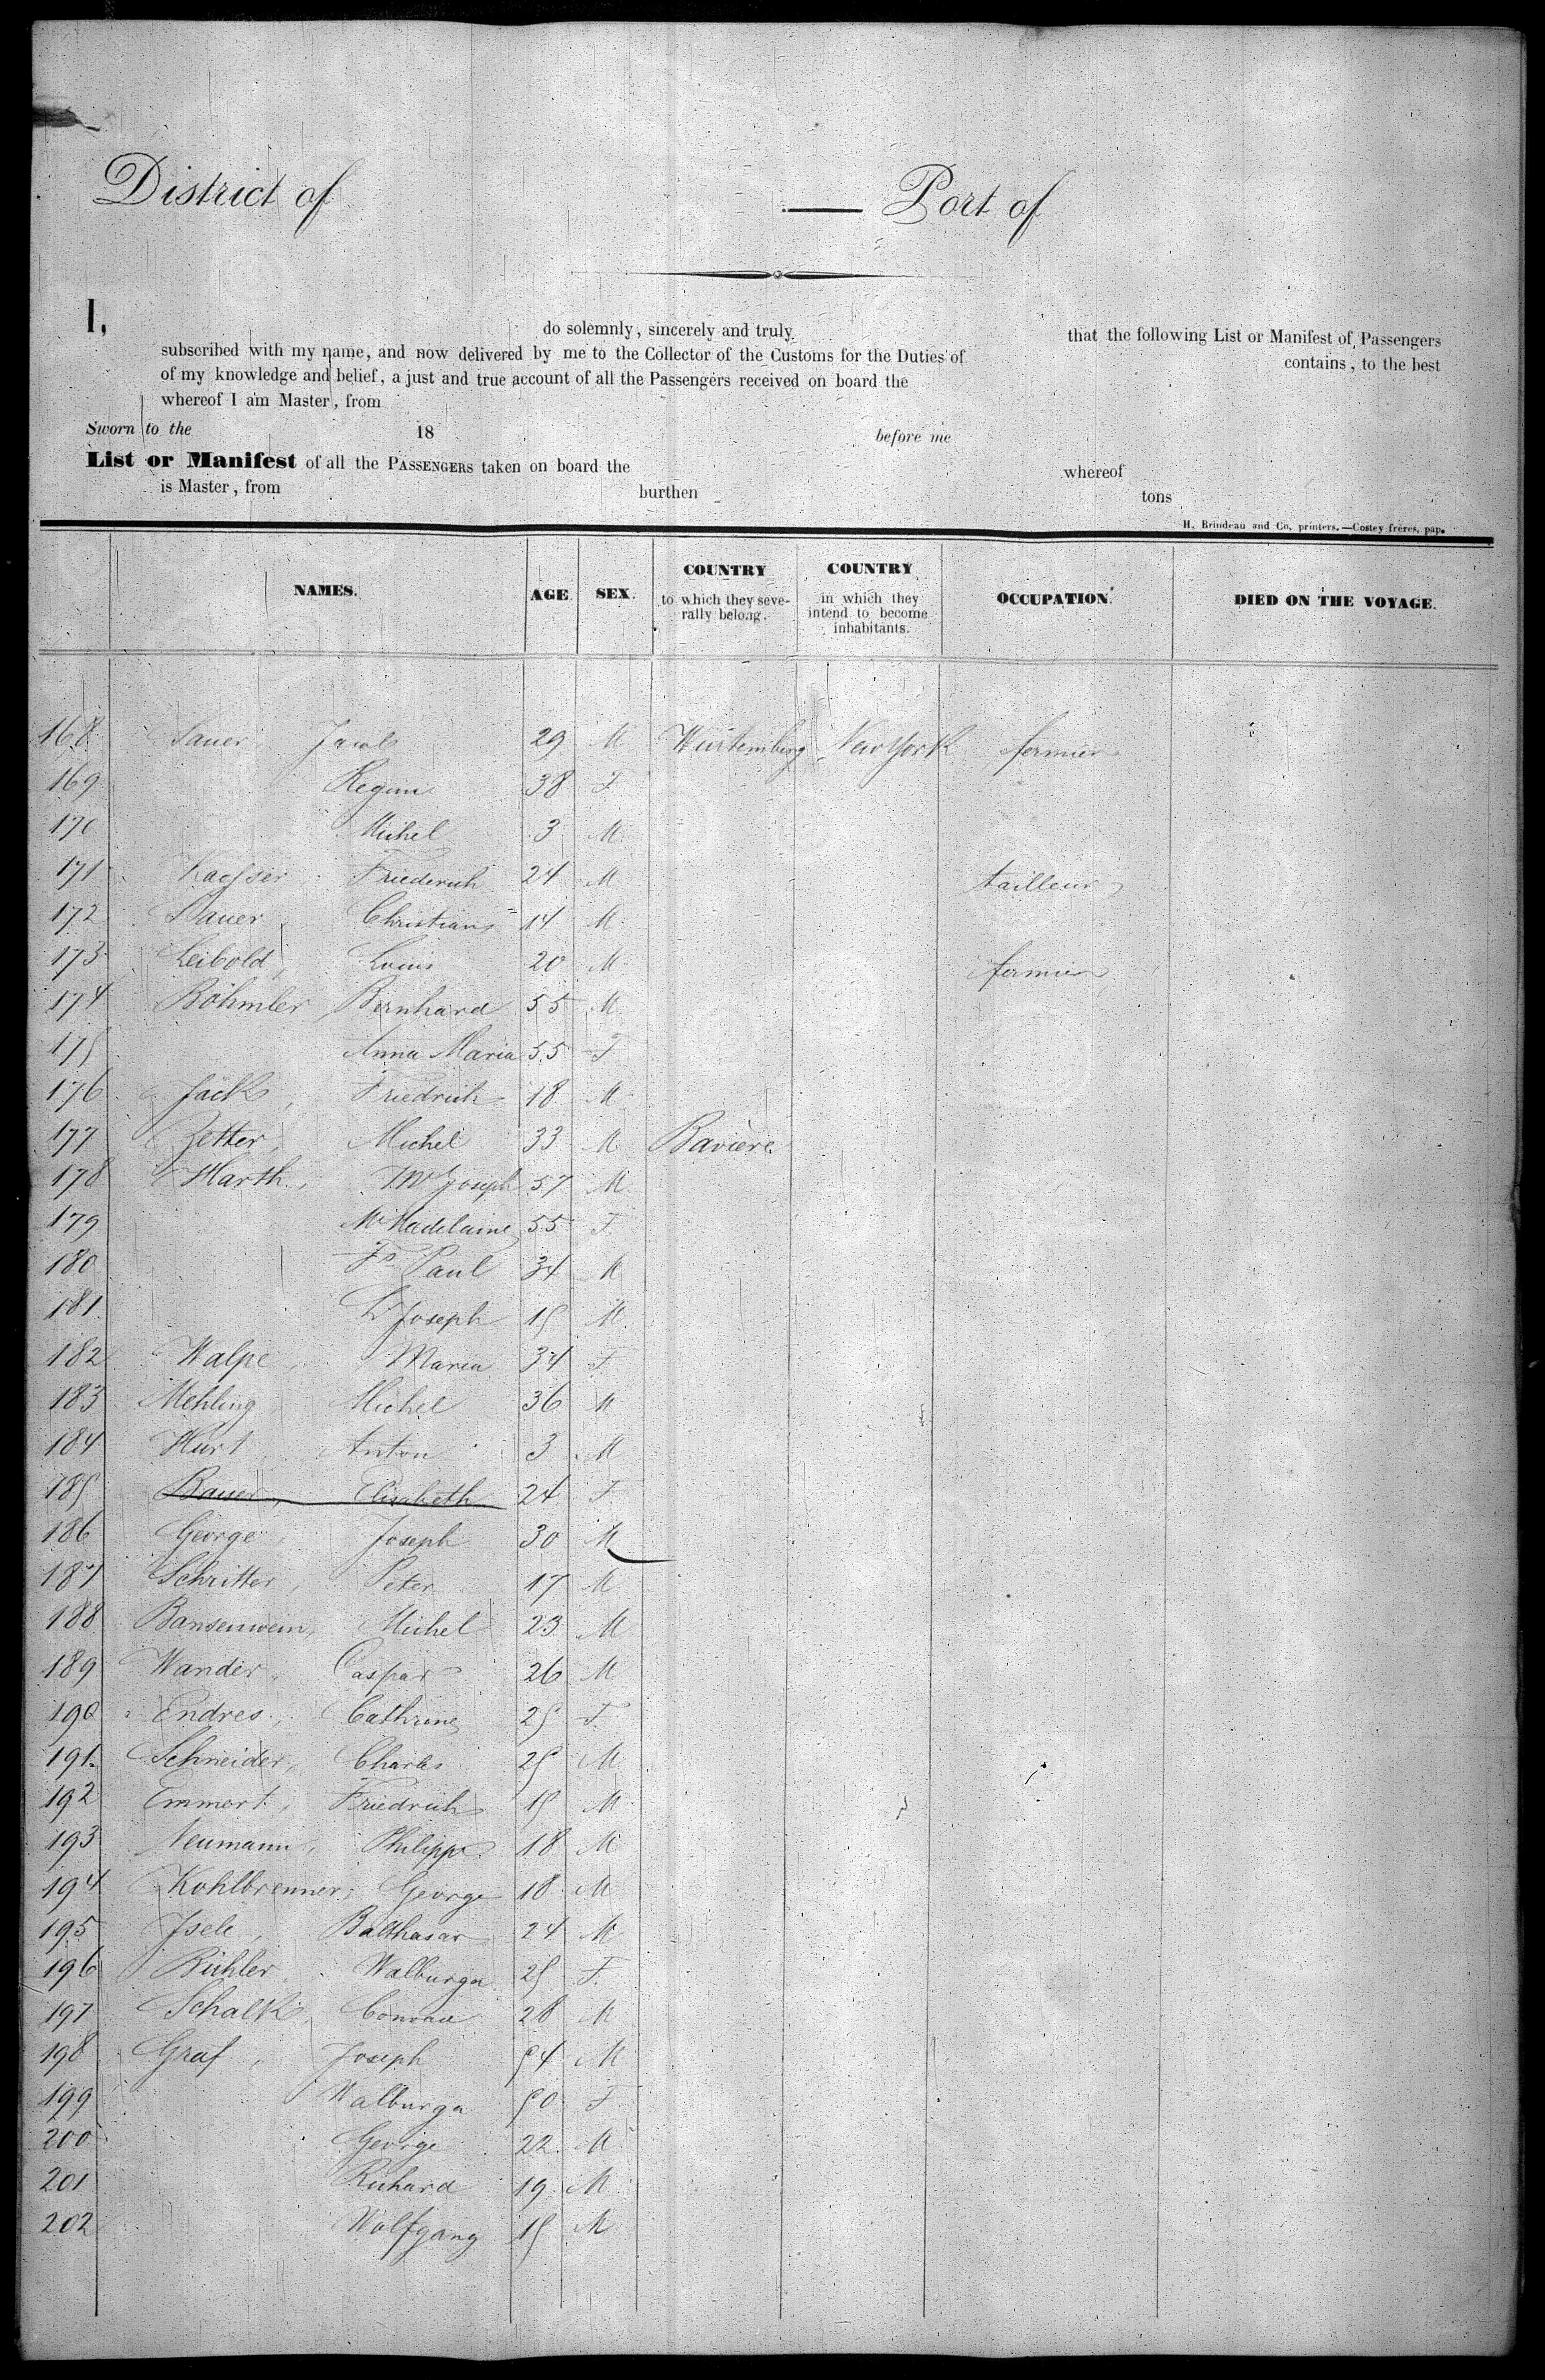 District of — Port of
I, do solemnly, sincerely and truly that the following List or Manifest of Passengers
subscribed with my name, and now delivered by me to the Collector of the Customs for the Duties of contains, to the best
of my knowledge and belief, a just and true account of all the Passengers received on board the
whereof I am Master, from
Sworn to the 18 before me
List or Manifest of all the PASSENGERS taken on board the whereof
is Master, from burthen tons
H. Brindeau and Co, printers.—Costey frères, pap.
NAMES. AGE SEX. COUNTRY to which they severally belong. COUNTRY in which they intend to become inhabitants. OCCUPATION. DIED ON THE VOYAGE.
168 Sauer, Jacob 29 M Würtemberg New York fermier
169 Regina 38 F
170 Michel 3 M
171 Friederich 24 M tailleur
172 Sauer Christian 14 M
173 Leibold, Louis 20 M fermier
174 Böhmler, Bernhard 55 M
175 Anna Maria 55 F
176 Jack, Friedrich 18 M
177 Zetter, Michel 33 M Bavière
178 Harth, Joseph 57 M
179 Mr Madelaine 55 F
180 Fs Paul 34 M
181 Joseph 15 M
182 Walpe, Maria 34 F
183 Mehling, Michel 36 M
184 Hurt Anton 3 M
185 Bauer, Elisabeth 24 F
186 George, Joseph 30 M
187 Schritter, Peter 17 M
188 Bansenwein, Michel 23 M
189 Wander, Caspar 26 M
190 Endres, Cathrine 25 F
191 Schneider, Charles 25 M
192 Emmert, Friedrich 15 M
193 Neumann, Philippe 18 M
194 Kohlbrenner, George 18 M
195 Isele, Balthasar 24 M
196 Bühler, Walburga 25 F
197 Schalk, Conrad 28 M
198 Graf, Joseph 54 M
199 Walburga 50 F
200 George 22 M
201 Richard 19 M
202 Wolfgang 15 M